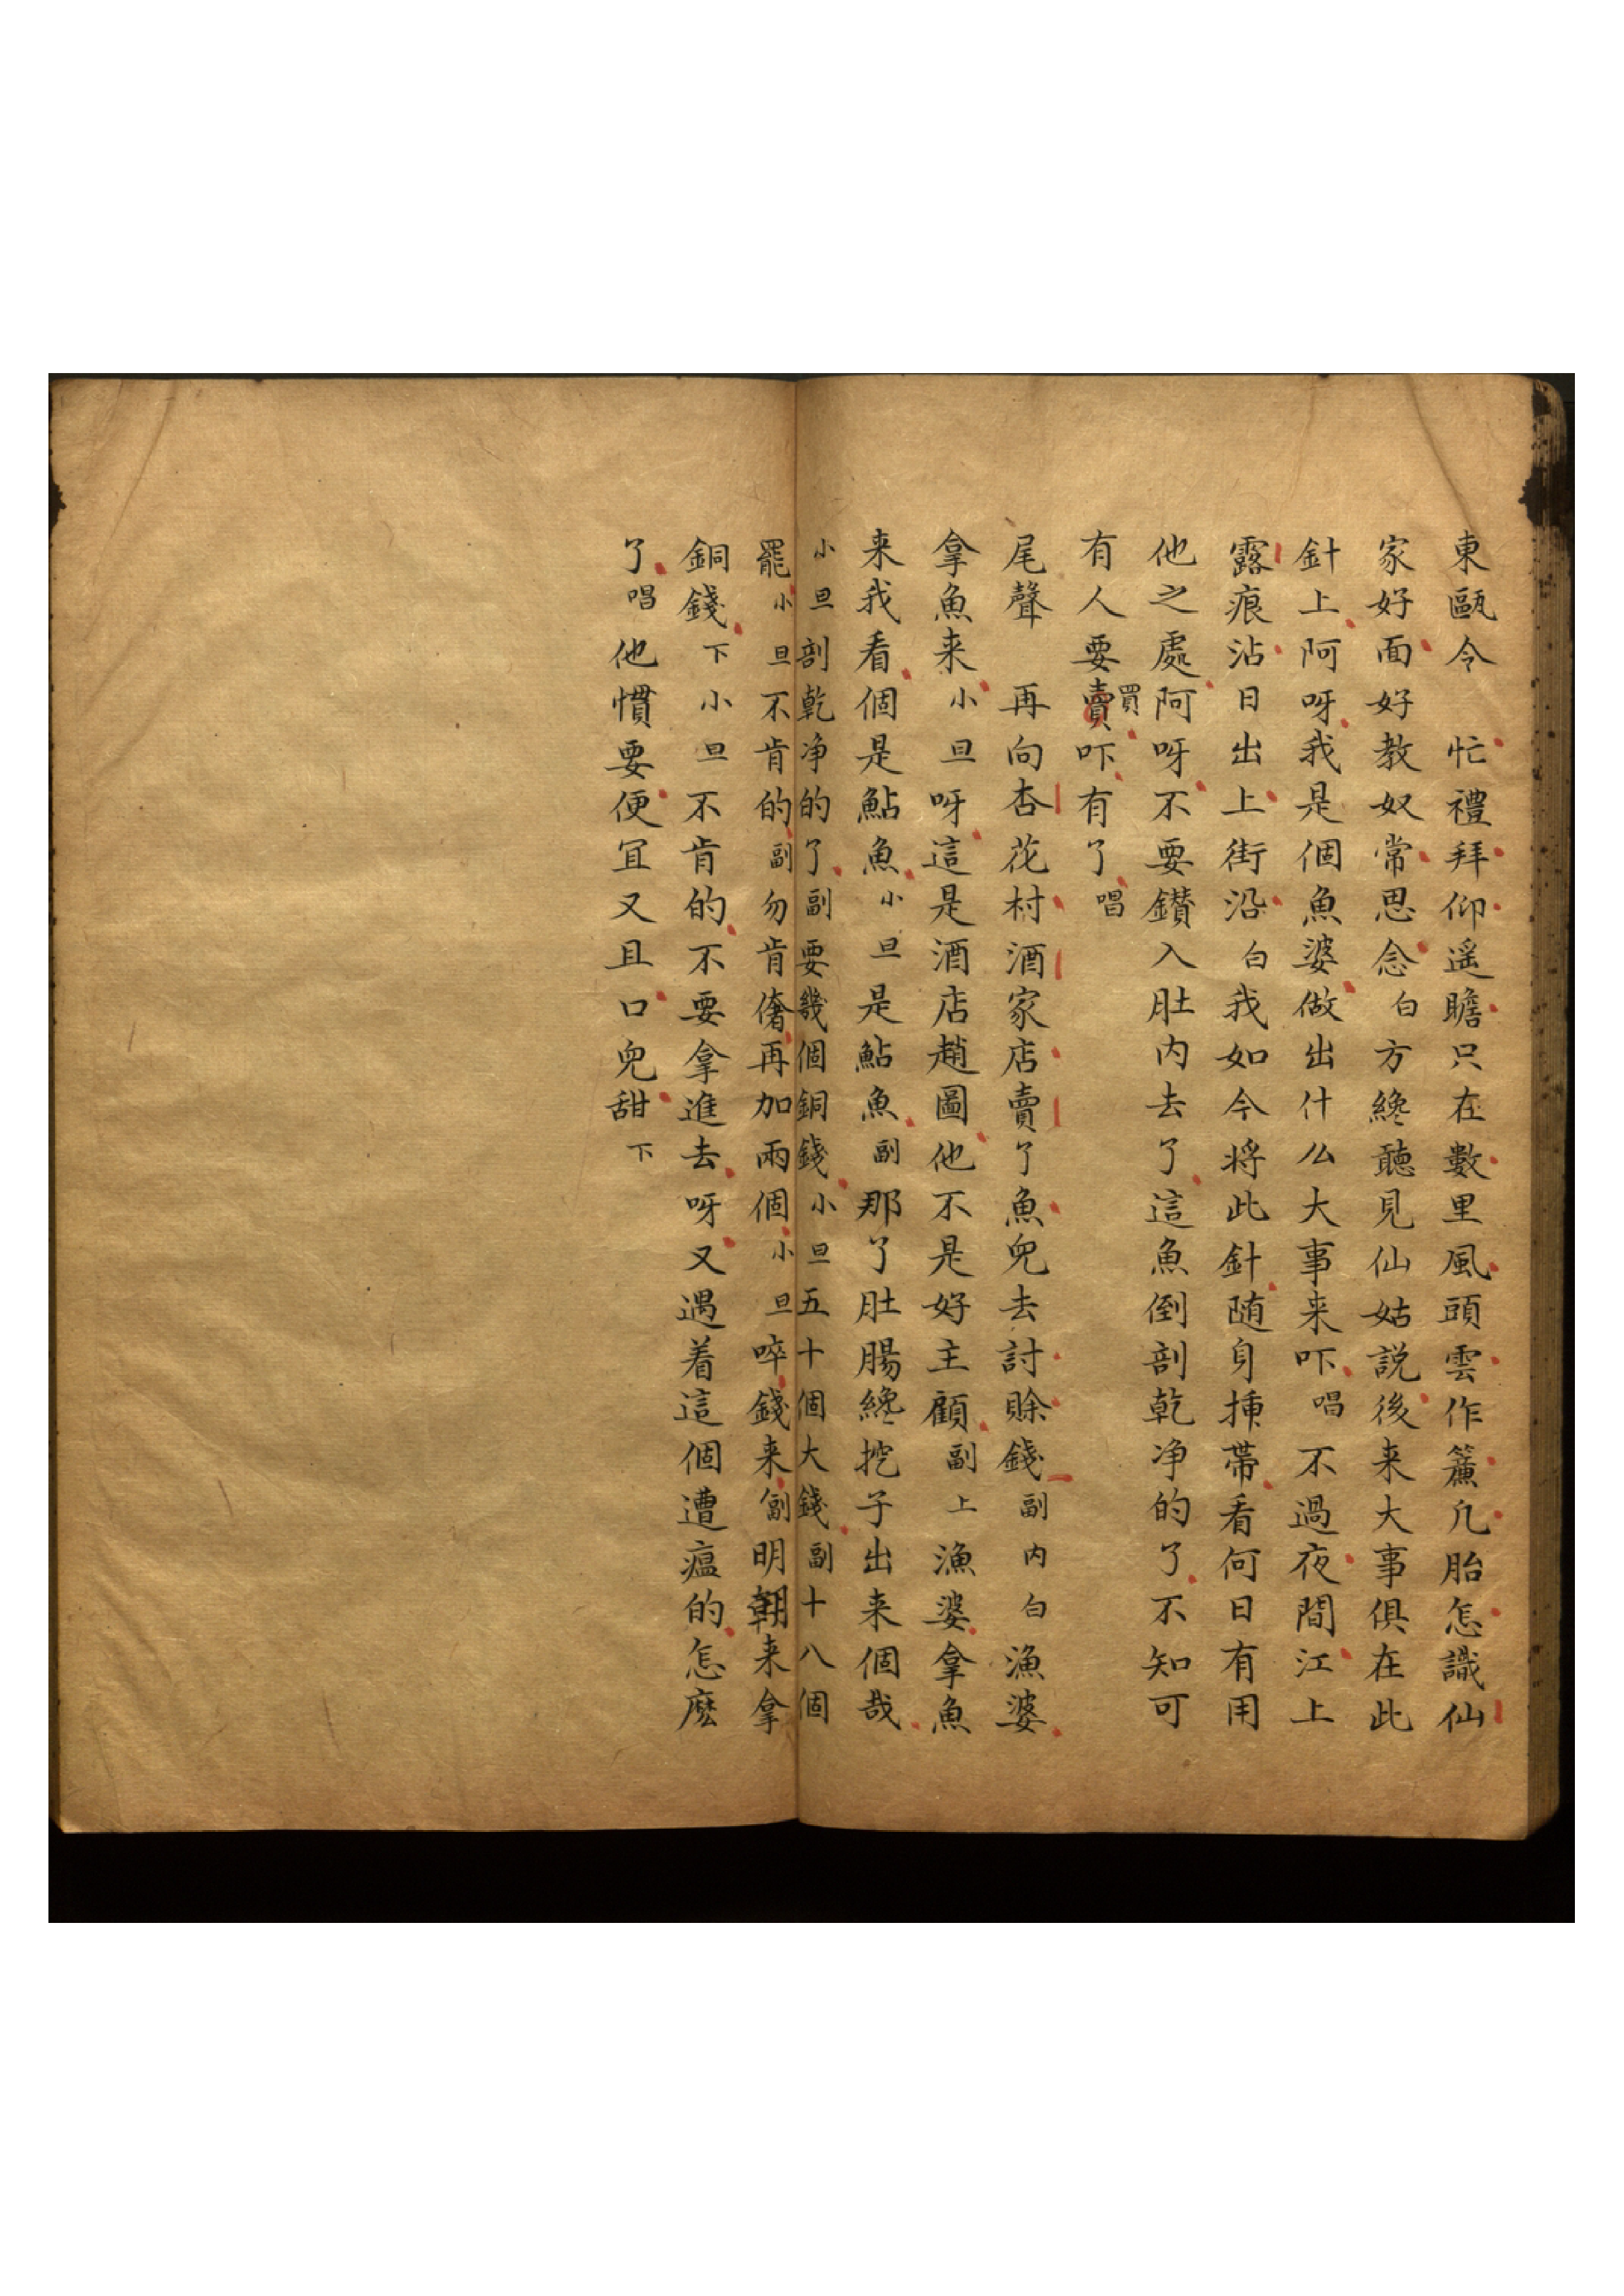 東甌令　忙禮拜仰遥瞻只在數里風頭雲作簾凢胎怎識仙
家好面好教奴常思念白方纔聽見仙姑説後来大事俱在此
針上阿呀我是個魚婆做出什么大事来吓唱不過夜間江上
露痕沾日出上街沿白我如今将此針随身揷帶看何日有用
他之處阿呀不要鑚入肚内去了這魚倒剖乾净的了不知可
有人要買吓有了唱
尾聲　再向杏花村酒家店賣了魚兒去討賒錢副内白漁婆
拿魚来小旦呀這是酒店趙圖他不是好主顧副上漁婆拿魚
来我看個是鮎魚小旦是鮎魚副那了肚腸纔挖子出来個哉
小旦剖乾净的了副要幾個銅錢小旦五十個大錢副十八個
罷小旦不肯的副勿肯儕再加兩個小旦啐錢来副明朝来拿
銅錢下小旦不肯的不要拿進去呀又遇着這個遭瘟的怎麽
了唱他慣要便宜又且口兒甜下